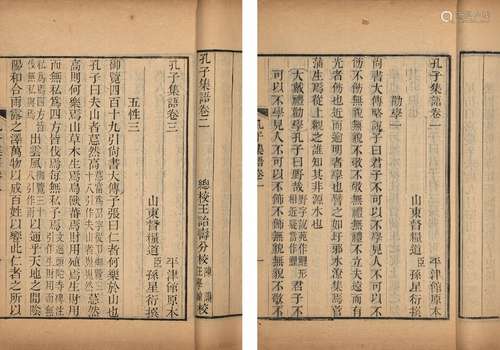 孔子集語卷一
平津館原本
山東督糧道臣孫星衍撰
勸學一
尚書大傳略說子曰君子不可以不學見人不可以不
飭不飭無貌無貌不敬不敬無禮無禮不立夫遠而有
光者飭也近而逾明者學也譬之如圩邪水潦集焉菅
蒲生焉從上觀之誰知其非源水也
大戴禮勸學孔子曰野哉君子不
可以不學見人不可以不飾不飾無貌無貌不敬不敬
孔子集語卷一
孔子集語卷二
總校王詒壽分校
校
孔子集語卷三
平津館原本
山東督糧道臣孫星衍撰
五性三
御覽四百十九引尚書大傳子張曰仁者何樂於山也
孔子曰夫山者然高
高則何樂焉山草木生焉鳥獸蕃焉財用殖焉生財用
而無私爲四方皆伐焉每無私予焉
出雲風以通乎天地之間陰
陽和合雨露之澤萬物以成百姓以饗此仁者之所以